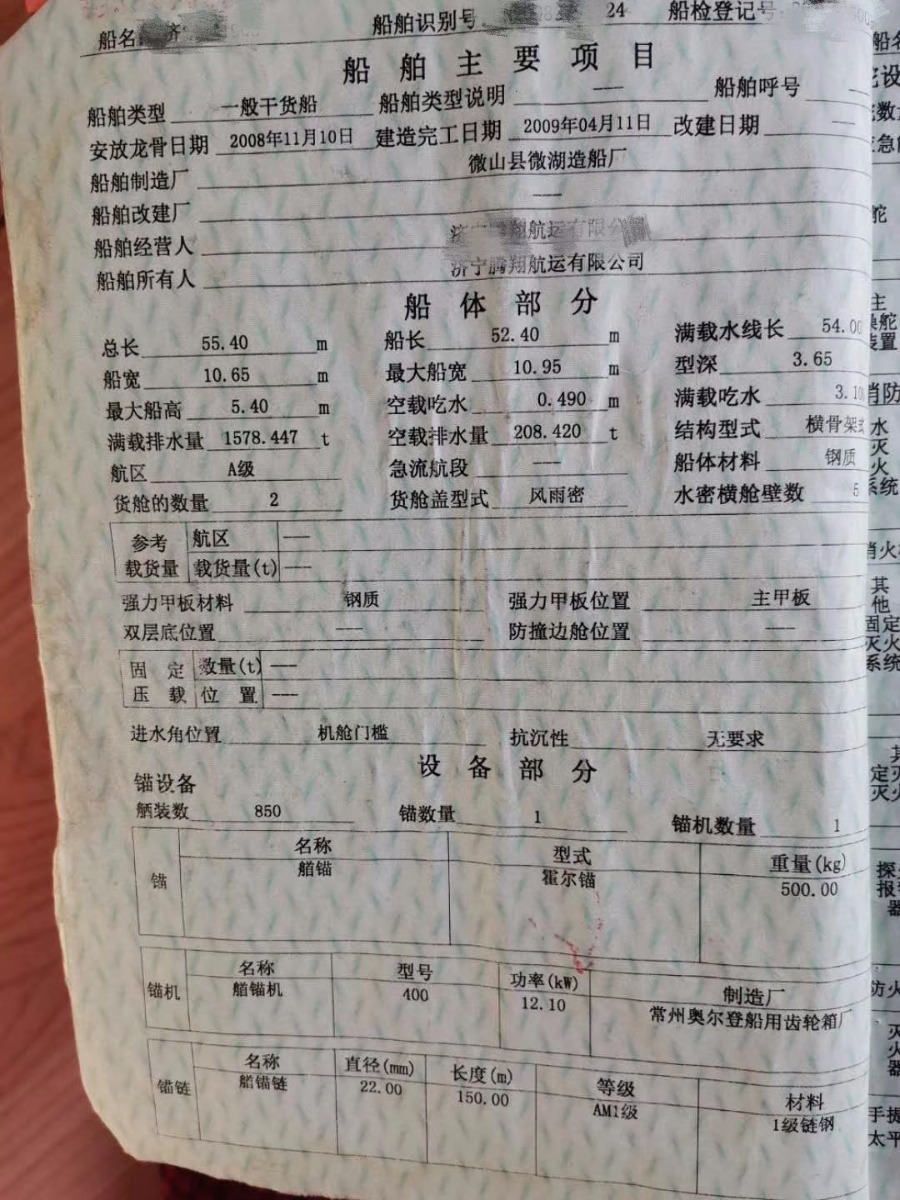 船名 济 船舶识别号 24 船检登记号
船舶主要项目
船舶类型 一般干货船 船舶类型说明 --- 船舶呼号
安放龙骨日期 2008年11月10日 建造完工日期 2009年04月11日 改建日期 ---
船舶制造厂 微山县微湖造船厂
船舶改建厂 ---
船舶经营人 济 翔航运有限公
船舶所有人 济宁腾翔航运有限公司
船体部分
总长 55.40 m 船长 52.40 m 满载水线长 54.00
船宽 10.65 m 最大船宽 10.95 m 型深 3.65
最大船高 5.40 m 空载吃水 0.490 m 满载吃水 3.10
满载排水量 1578.447 t 空载排水量 208.420 t 结构型式 横骨架式
航区 A级 急流航段 --- 船体材料 钢质
货舱的数量 2 货舱盖型式 风雨密 水密横舱壁数 5
参考 航区 ---
载货量 载货量(t) ---
强力甲板材料 钢质 强力甲板位置 主甲板
双层底位置 --- 防撞边舱位置 ---
固定 数量(t) ---
压载 位置 ---
进水角位置 机舱门槛 抗沉性 无要求
设备部分
锚设备
舾装数 850 锚数量 1 锚机数量 1
名称 型式 重量(kg)
锚 艏锚 霍尔锚 500.00
名称 型号 功率(kW) 制造厂
锚机 艏锚机 400 12.10 常州奥尔登船用齿轮箱厂
名称 直径(mm) 长度(m) 等级 材料
锚链 艏锚链 22.00 150.00 AM1级 1级链钢
船名
数
急
舵
主
操舵
装置
消防
水
灭
火
系统
消火
其
他
固定
灭火
系统
其
定灭
灭火
探
报
器
防火
灭
火
器
手提
太平